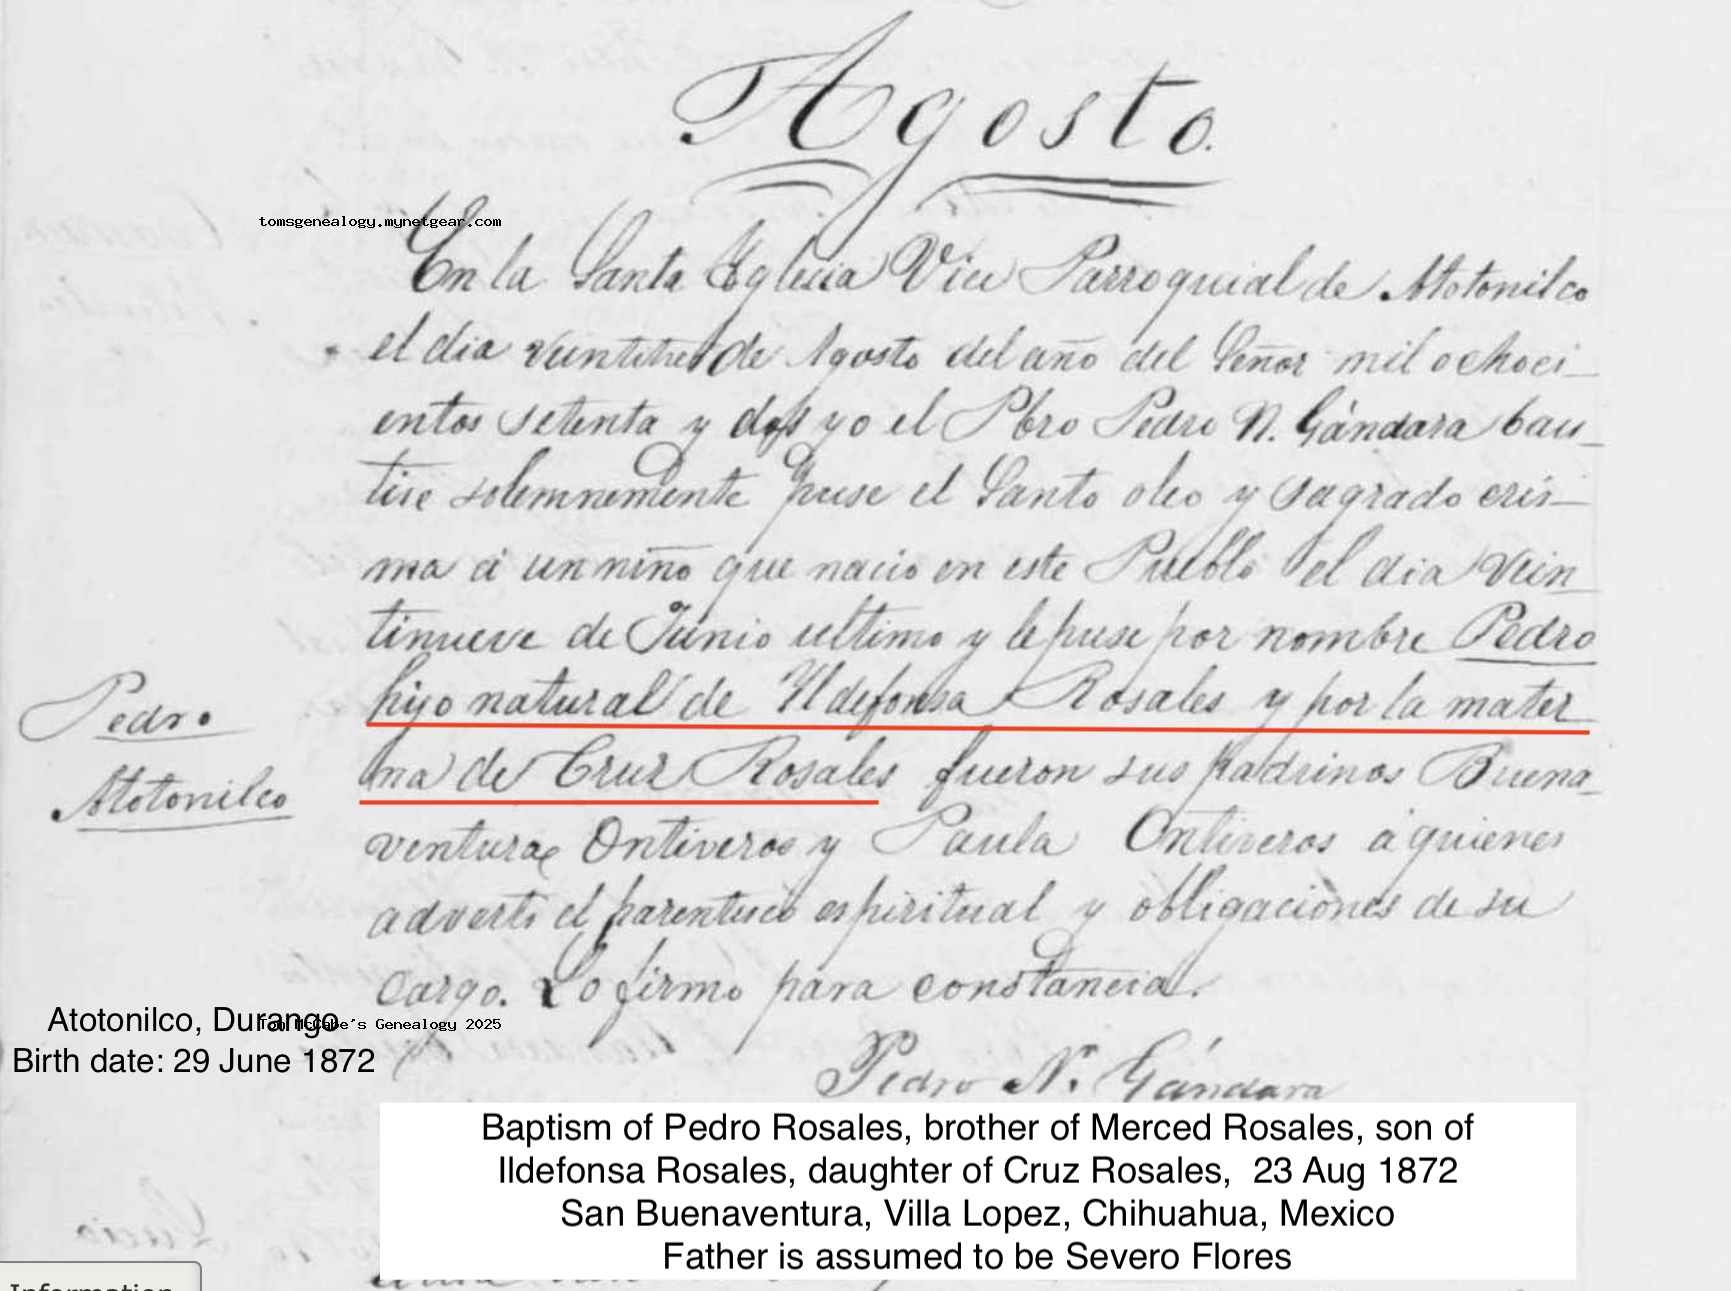 Agosto.
tomsgenealogy.mynetgear.com
En la Santa Yglecia Vice Parroquial de Atotonilco
el dia veintitres de Agosto del año del Señor mil ochoci_
entos setenta y dos yo el Pbro Pedro N. Gándara bau_
tise solemnemente puse el Santo oleo y sagrado cris_
ma á un niño que nacio en este Pueblo el dia vein_
tinueve de Junio ultimo y le puse por nombre Pedro
hijo natural de Yldefonsa Rosales y por la mater_
Pedro
na de Cruz Rosales fueron sus padrinos Buena_
Atotonilco
ventura Ontiveros y Paula Ontiveros á quienes
adverti el parentesco espiritual y obligaciones de su
cargo. Lo firmo para constancia.
Atotonilco, Durango
Tom McCabe's Genealogy 2025
Birth date: 29 June 1872
Pedro N. Gándara
Baptism of Pedro Rosales, brother of Merced Rosales, son of
Ildefonsa Rosales, daughter of Cruz Rosales, 23 Aug 1872
San Buenaventura, Villa Lopez, Chihuahua, Mexico
Father is assumed to be Severo Flores
Lucio
Information